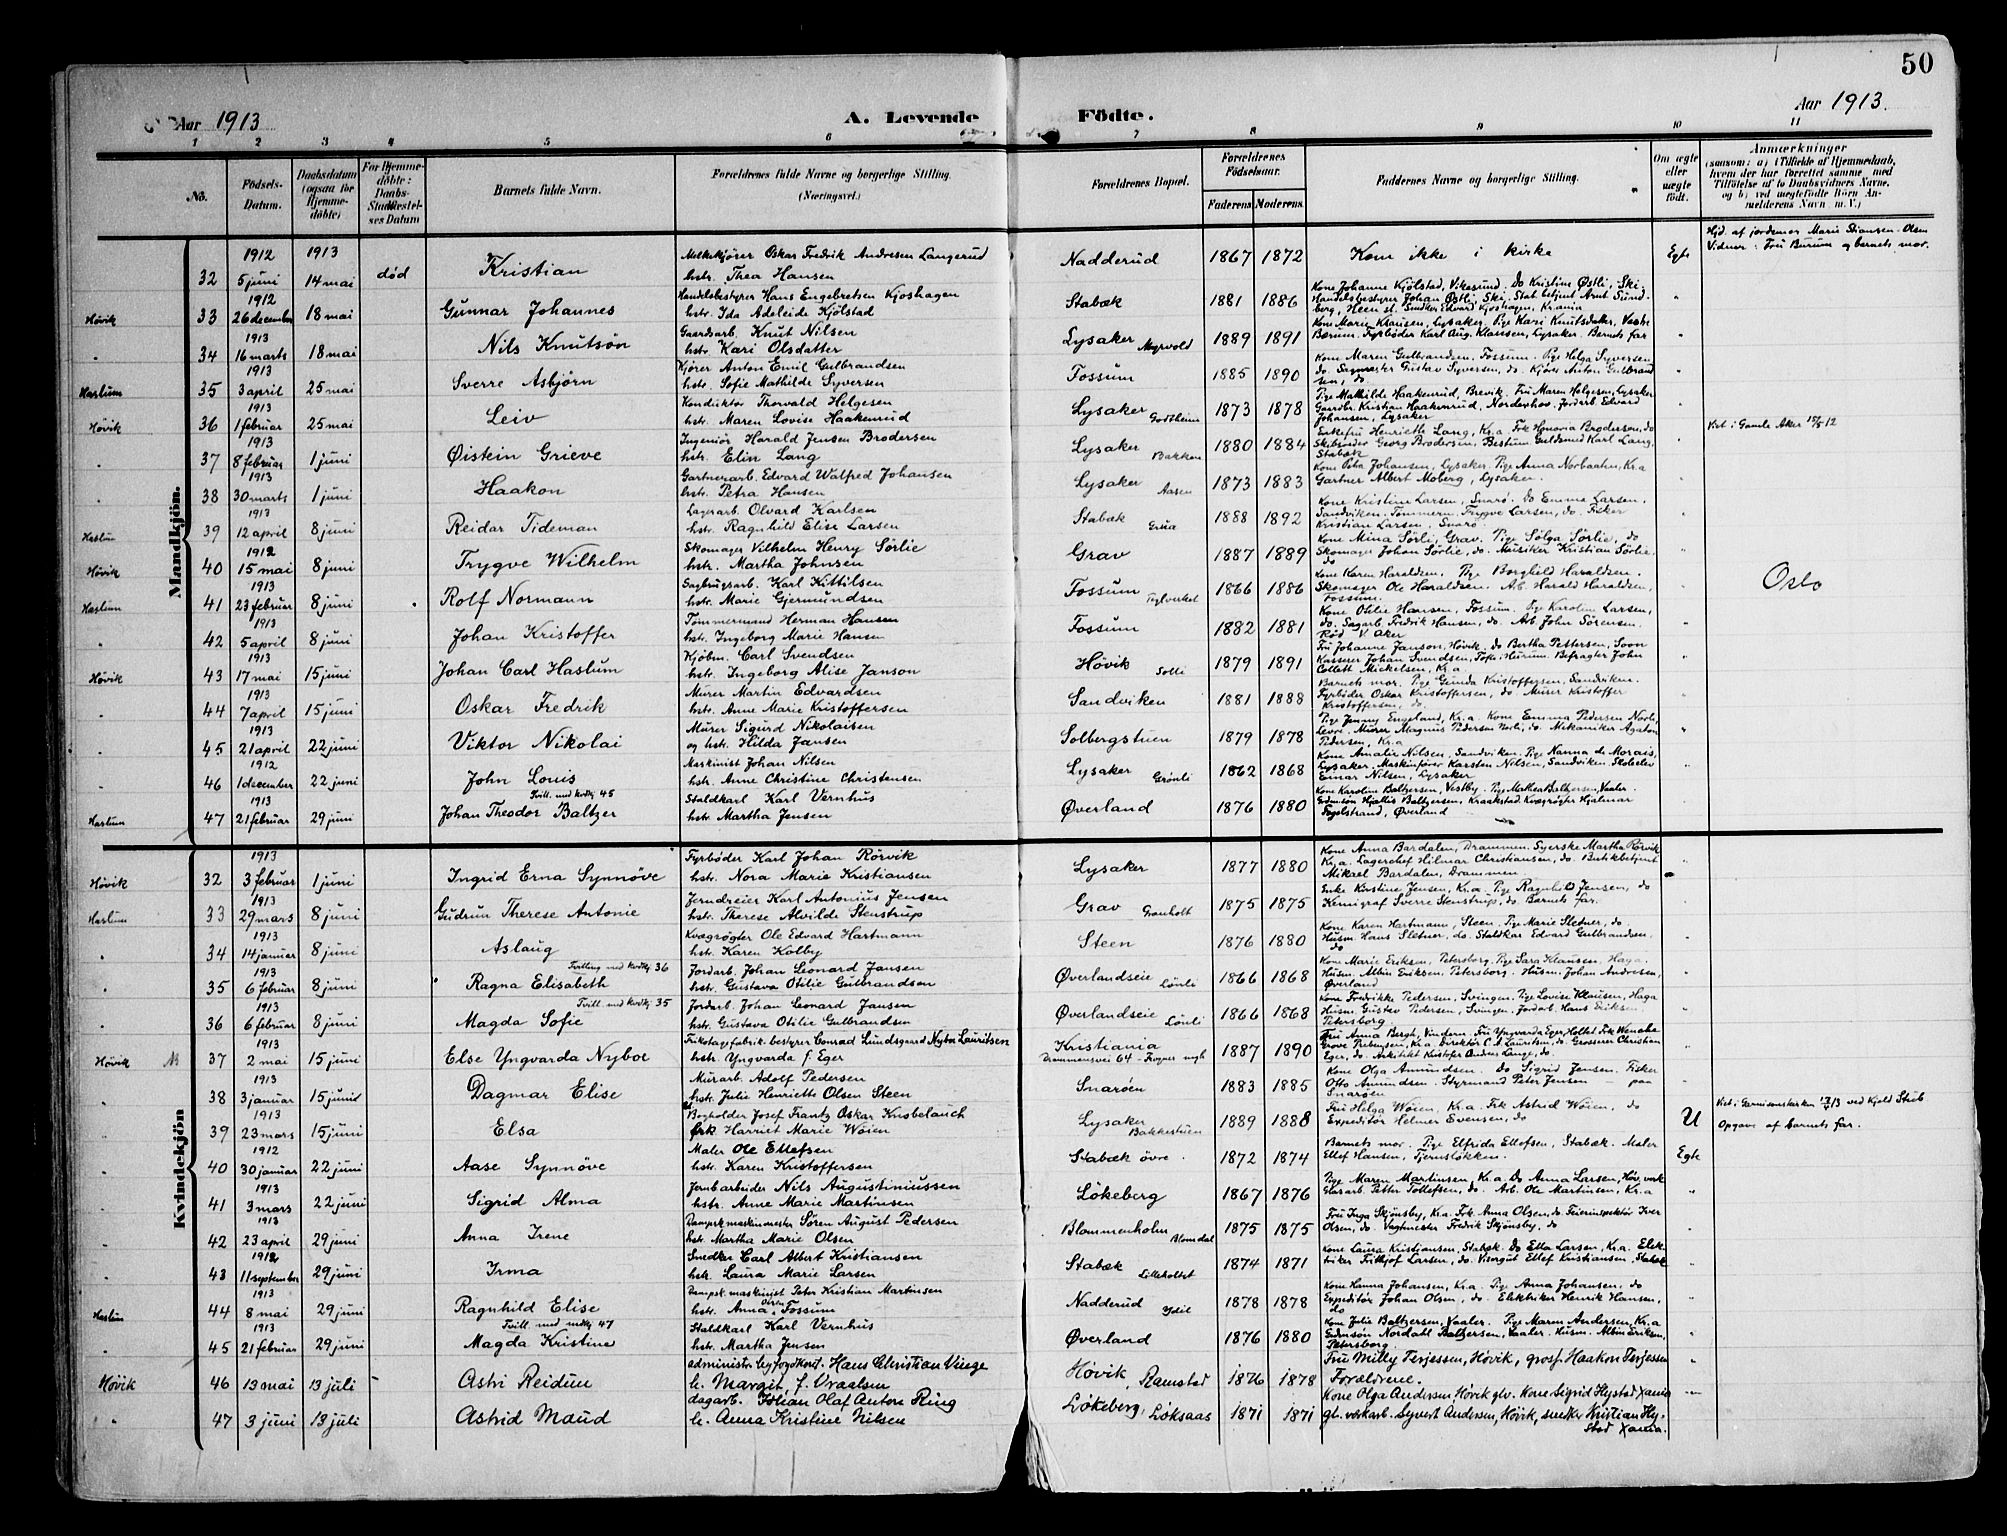 50
Aar 1913
A. Levende Födte.
Aar 1913.
1 2 3 4 5 6 7 8 9 10 11
No.
Födsels-Datum.
Daabsdatum (ogsaa for Hjemmedöbte)
For Hjemmedöbte: Daabs-Stadfæstelses Datum
Barnets fulde Navn.
Forældrenes fulde Navne og borgerlige Stilling.
(Næringsvei.)
Forældrenes Bopæl.
Forældrenes Födselsaar.
Faderens. Moderens.
Faddernes Navne og borgerlige Stilling.
Om ægte eller uægte født.
Anmærkninger
(saasom: a) i Tilfælde af Hjemmedaab, hvem der har forrettet samme, med Tilföielse af to Daabsvidners Navne, og b) ved uægtefödte Börn Anmelderens Navn m. V.)
Mandkjön.
32 1912 5 juni 1913 14 mai död Kristian Melkekjörer Oskar Fredrik Andresen Langerud
hstr. Thea Hansen Nadderud 1867 1872 Kom ikke i kirke Egte
Vidner: Fru Burum og barnets mor.
Hövik 33 1912 26 december 18 mai Gunnar Johannes Handelsbestyrer Hans Engebretsen Kjoshagen
hstr. Ida Adeleide Kjölstad Stabæk 1881 1886 Kone Johanne Kjölstad, Vikesund. Do Kristine Østli, Ski,
Handelsbestyrer Johan Østli, Ski,
" 34 1913 16 marts 18 mai Nils Knutsön Gaardsarb. Knut Nilsen
hstr. Kari Olsdatter Lysaker Myrvold 1889 1891 Kone Maren Klausen, Lysaker. Pige Kari Knutsdatter, Vestre
Bærum. Fyrböder Karl Aug. Klausen, Lysaker. Barnets far "
Haslum 35 1913 3 april 25 mai Sverre Asbjörn Kjörer Anton Emil Gulbrandsen
hstr. Sofie Mathilde Syversen Fossum 1885 1890 Kone Maren Gulbrandsen, Fossum. Pige Helga Syversen,
do. Sagmester Gustav Syversen, do. Kjörer Anton Gulbrand
sen, do. "
Hövik 36 1913 1 februar 25 mai Leiv Konduktör Thorvald Helgesen
hstr. Maren Lovise Haakenrud Lysaker Godtheim 1873 1878 Pige Mathilde Haakenrud, Brevik. Fru Maren Helgesen, Lysaker
Gaardbr. Kristian Haakenrud, Norderhov. Jordarb. Edvard
Johansen, Lysaker
" 37 1913 8 februar 1 juni Øistein Grieve Ingeniör Harald Jensen Brodersen
hstr. Elin Lang Lysaker Bakken 1880 1884 Enkefru Henriette Lang, Kr.a. Frk Honoria Brodersen, do
Skibsreder Georg Brodersen, Bestum Guldsmed Karl Lang,
Stabæk
" 38 1913 30 marts 1 juni Haakon Gartnerarb. Edvard Walfred Johansen
hstr. Petra Hansen Lysaker Aasen 1873 1883 Kone Osba Johansen, Lysaker. Pige Anna Norbaahn, Kr.a
Gartner Albert Moberg, Lysaker. "
Haslum 39 1913 12 april 8 juni Reidar Tideman Lagerarb. Olvard Karlsen
hstr. Ragnhild Elise Larsen Stabæk Grua 1888 1892 Kone Kristine Larsen, Snarö. Do Emma Larsen.
Sandviken. Tömmerm. Trygve Larsen, do. Fisker
Kristian Larsen, Snarö.
Hövik 40 1912 15 mai 8 juni Trygve Wilhelm Skomager Vilhelm Henry Sörlie
hstr. Martha Johnsen Grav 1887 1889 Kone Mina Sörli, Grav. Pige Solga Sörlie, do
Skomager Johan Sörlie, do. Musiker Kristian Sörlie,
do "
Haslum 41 1913 23 februar 8 juni Rolf Normann Sagbrugsarb. Karl Kittilsen
hstr. Marie Gjermundsen Fossum Teglverket 1866 1886 Kone Karen Haraldsen. Pige Borghild Haraldsen.
Skomager Ole Haraldsen. Arb. Harald Haraldsen,
Fossum. " Oslo
" 42 1913 5 april 8 juni Johan Kristoffer Tömmermand Herman Hansen
hstr. Ingeborg Marie Hansen Fossum 1882 1881 Kone Otilie Hansen, Fossum. Pige Karolin Larsen,
do. Sagarb. Fredrik Hansen, do. Arb. John Sörensen,
Röd V. Aker "
Hövik 43 1913 17 mai 15 juni Johan Carl Haslum Kjöbm. Carl Svendsen
hstr. Ingeborg Alise Janson Hövik Solli 1879 1891 Fru Johanne Janson, Hövik. do Bertha Pettersen, Soon
Kasserer Johan Svendsen, Tofte i Hurum. Befragter John
Collett Mickelsen, Kr.a. "
" 44 1913 7 april 15 juni Oskar Fredrik Murer Martin Edvardsen
hstr. Anne Marie Kristoffersen Sandviken 1881 1888 Barnets mor. Pige Gunda Kristoffersen, Sandviken.
Fyrböder Oskar Kristoffersen, do Murer Kristoffer
Kristoffersen, do. "
" 45 1913 21 april 22 juni Viktor Nikolai Murer Sigurd Nikolaisen
og hstr. Hilda Jansen Solbergstuen 1879 1878 Pige Jenny Engeland, Kr.a Kone Emma Pedersen
Murer Magnus Pedersen do. Mekaniker Agaton
Pedersen, Kr.a "
" 46 1912 1 december 22 juni John Louis Maskinist Johan Nilsen
hstr. Anne Christine Christensen Lysaker Grönli 1862 1868 Kone Amalie Nilsen, Sandviken. Pige Nanna de Morais,
Lysaker. Maskinförer Karsten Nilsen, Sandviken. Skoleelev
Einar Nilsen, Lysaker
Haslum 47 1913 21 februar 29 juni Tvill. med kvdkj 45
Johan Theodor Baltzer Staldkarl Karl Vernhus
hstr. Martha Jensen Øverland 1876 1880 Kone Karoline Baltzersen, Vestby. Pige Mathea Baltzersen, Vaaler.
Gdmsön Hjallis Baltzersen, Kraakstad. Kvægrögter Hjalmar
Fagelstrand, Øverland
Kvindekjön
Hövik 32 1913 3 februar 1 juni Ingrid Erna Synnöve Fyrböder Karl Johan Rörvik
hstr. Nora Marie Kristiansen Lysaker 1877 1880 Kone Anna Bardalen, Drammen. Syerske Martha Rörvik
Kr.a. Lagerchef Hilmar Christiansen, do. Butikbetjent
Mikael Bardalen, Drammen. "
Haslum 33 1913 29 mars 8 juni Gudrun Therese Antonie Jerndreier Karl Antonius Jensen
hstr. Therese Alvilde Stenstrup Grav Granholt 1875 1875 Enke Kristine Jensen, Kr.a. Pige Ragnhild Jensen, do
Kemigraf Sverre Stenstrup, do. Barnets far. "
" 34 1913 14 januar 8 juni Aslaug Kvægrögter Ole Edvard Hartmann
hstr. Karen Kolby Steen 1876 1880 Kone Karen Hartmann, Steen. Pige Marie Sletner, do.
Husm. Hans Sletner, do. Staldkar Edvard Gulbrandsen,
do "
" 35 1913 6 februar 8 juni Tvilling med kvdkj 36
Ragna Elisabeth Jordarb. Johan Leonard Jansen
hstr. Gustava Otilie Gulbrandsen Øverlandseie Lönli 1866 1868 Kone Marie Eriksen, Petersborg. Pige Sara Klausen, Haga.
Husm. Albin Eriksen, Petersborg. Husm. Johan Andresen,
Øverland "
" 36 1913 6 februar 8 juni Tvill. med kvdkj 35
Magda Sofie Jordarb. Johan Leonard Jansen
hstr. Gustava Otilie Gulbrandsen Øverlandseie Lönli 1866 1868 Kone Fredrikke Pedersen, Svingen. Pige Lovise Klausen, Haga
Husm. Gustav Pedersen, Svingen. Jordarb. Hans Eriksen
Petersborg "
Hövik 37 1913 2 mai 15 juni Else Yngvarda Nyboe Trikotagefabrik.bestyrer Conrad Lundsgaard Nyboe Lauritsen
hstr. Yngvarda f. Eger Kristiania
Drammensvei 64 - Frogner mgh 1887 1890 Fru Anna Bergh, Vindern. Fru Yngvarda Eger, Frk Wenche
Grove Prebensen, Kr.a. Direktör C. A. Lauritsen, do. Grosserer Christian
Eger, do. Arkitekt Kristofer Andres Lange, do. "
" 38 1913 3 januar 15 juni Dagmar Elise Murarb. Adolf Pedersen
hstr. Julie Henriette Olsen Steen Snaröen 1883 1885 Kone Olga Amundsen. Do Sigrid Jensen. Fisker
Otto Amundsen. Styrmand Peter Jensen — paa
Snaröen "
" 39 1913 23 mars 15 juni Elsa Bogholder Josef Frantz Oskar Knobelauch
frk Harriet Marie Wöien Lysaker Bakkestuen 1889 1888 Fru Helga Wöien, Kr.a. Frk Astrid Wöien, do
Expeditör Helmer Evensen, do U
Opgave af barnets far.
" 40 1912 30 januar 22 juni Aase Synnöve Maler Ole Ellefsen
hstr. Karen Kristoffersen Stabæk övre. 1872 1874 Barnets mor. Pige Elfrida Ellefsen, Stabæk. Maler
Ellef Hansen, Tjernslökken. Egte
" 41 1913 3 mars 22 juni Sigrid Alma Jernbarbeider Nils Augustiniussen
hstr. Anne Marie Martinsen Lökeberg 1867 1876 Pige Maren Martinsen, Kr.a. Do Anna Larsen, Höv. verk
Glasarb. Petter Tollefsen, do. Arb. Ole Martinsen, Kr.a "
" 42 1913 23 april 29 juni Anna Irene Dampsk.maskinmester Sören August Pedersen
hstr. Martha Marie Olsen Blommenholm Blomdal 1875 1875 Fru Inga Skjönsby, Kr.a. Frk. Anna Olsen, do Feierinspektör Iver
Olsen, do. Vagmester Fredrik Skjönsby, do "
" 43 1912 11 september 29 juni Irma Snedker Carl Albert Kristiansen
hstr. Laura Marie Larsen Stabæk Lilleholtet 1874 1871 Kone Laura Kristiansen, Stabæk. Do Ella Larsen, Kr.a. Elek-
triker Frithjof Larsen, do. Visergut Ellef Kristiansen, Stabæk "
Haslum 44 1913 8 mai 29 juni Ragnhild Elise Dampsk.maskinist Peter Kristian Martinsen
hstr. Anna Fossum Nadderud Ydil 1878 1878 Kone Hanna Johansen, Kr.a. Pige Anna Johansen, do
Expeditör Johan Olsen, do. Elektriker Henrik Hansen,
do "
45 1913 21 februar 29 juni Tvill. med mdkj 47
Magda Kristine Staldkarl Karl Vernhus
hstr. Martha Jensen Øverland 1876 1880 Kone Julie Baltzersen, Vaaler. Pige Maren Andersen, Kr.a
Gdmsön Nordahl Baltzersen, Vaaler. Husm. Albin Eriksen,
Petersborg. "
Hövik 46 13 mai 13 juli Astri Reidun administr. Hans Christian Vinge
h. Margit f. Vraalsen Hövik, Ramstad 1876 1878 Fru Milly Terjessen, Hövik, gross. Haakon Terjessen
Forældrene. "
" 47 3 juni 13 juli Astrid Maud dagarb. Johan Olaf Anton Ring
h. Anna Kristine Nilsen Lökeberg, Löksaas 1871 1871 Kone Olga Andersen Hövik glv. Kone Sigrid Hystad Xania
gl. verkarb. Syvert Andersen, Hövik, snedker Kristian Hy-
stad Xania. "